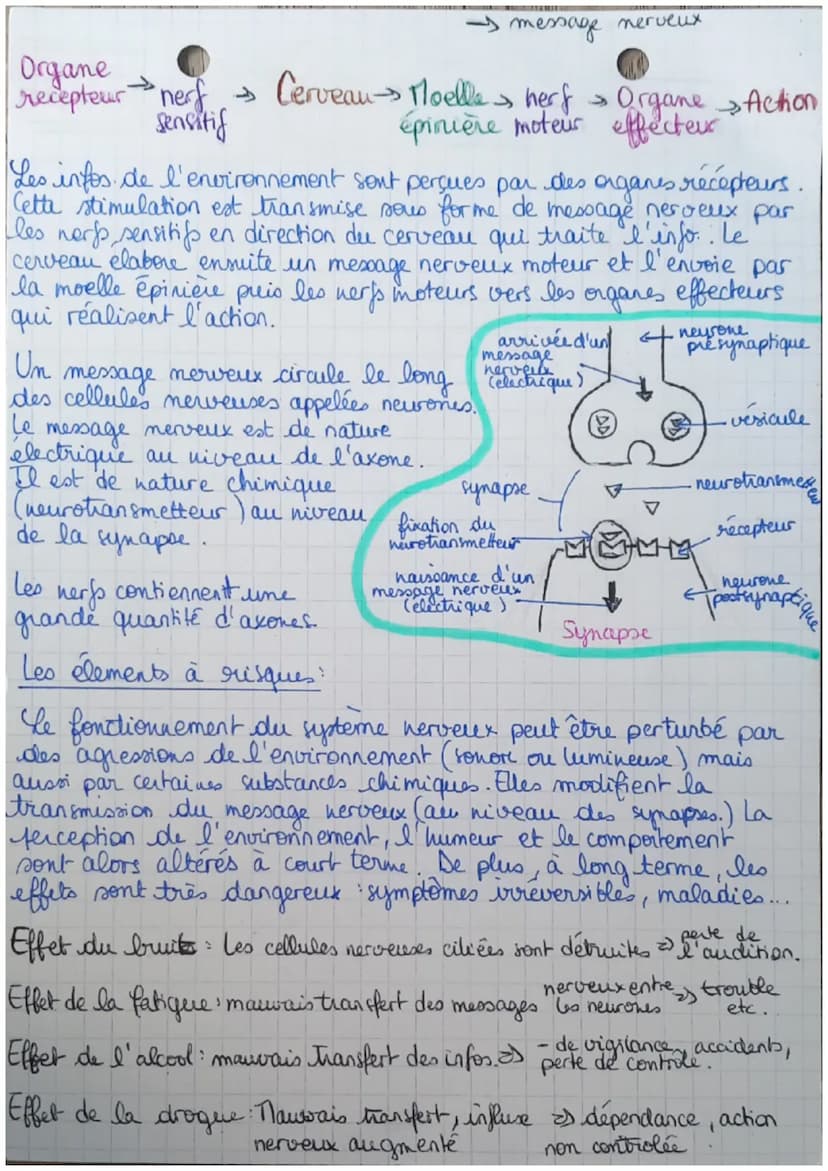 → message nerveux
Organe récepteur → nerf sensitif → Cerveau → Moelle épinière → nerf moteur → Organe effecteur → Action
Les infos. de l'environnement sont perçues par des organes récépteurs.
Cette stimulation est transmise sous forme de message nerveux par
les nerfs sensitifs en direction du cerveau qui traite l'info. Le
cerveau élabore ensuite un message nerveux moteur et l'envoie par
la moelle épinière puis les nerfs moteurs vers les organes effecteurs
qui réalisent l'action.
Un message nerveux circule le long
des cellules nerveuses appelées neurones.
Le message nerveux est de nature
électrique au niveau de l'axone.
Il est de nature chimique
(neurotransmetteur) au niveau
de la synapse.
Les nerfs contiennent une
grande quantité d'axones.
arrivée d'un
message
nerveux
(électrique)
neurone
présynaptique
vésicule
synapse
neurotransmetteur
fixation du
neurotransmetteur
récepteur
naissance d'un
message nerveux
(électrique)
neurone
postsynaptique
Synapse
Les élements à risques :
Le fonctionnement du système nerveux peut être perturbé par
des agressions de l'environnement (sonore ou lumineuse) mais
aussi par certaines substances chimiques. Elles modifient la
transmission du message nerveux (au niveau des synapses.) La
perception de l'environnement, l'humeur et le comportement
sont alors altérés à court terme. De plus, à long terme, les
effets sont très dangereux : symptômes irréversibles, maladies...
Effet du bruit : Les cellules nerveuses ciliées sont détruites => perte de l'audition.
Effet de la fatigue : mauvais transfert des messages nerveux entre les neurones => trouble etc.
Effet de l'alcool : mauvais transfert des infos. => - de vigilance, accidents, perte de contrôle.
Effet de la drogue : Mauvais transfert, influxe nerveux augmenté => dépendance, action non controlée.